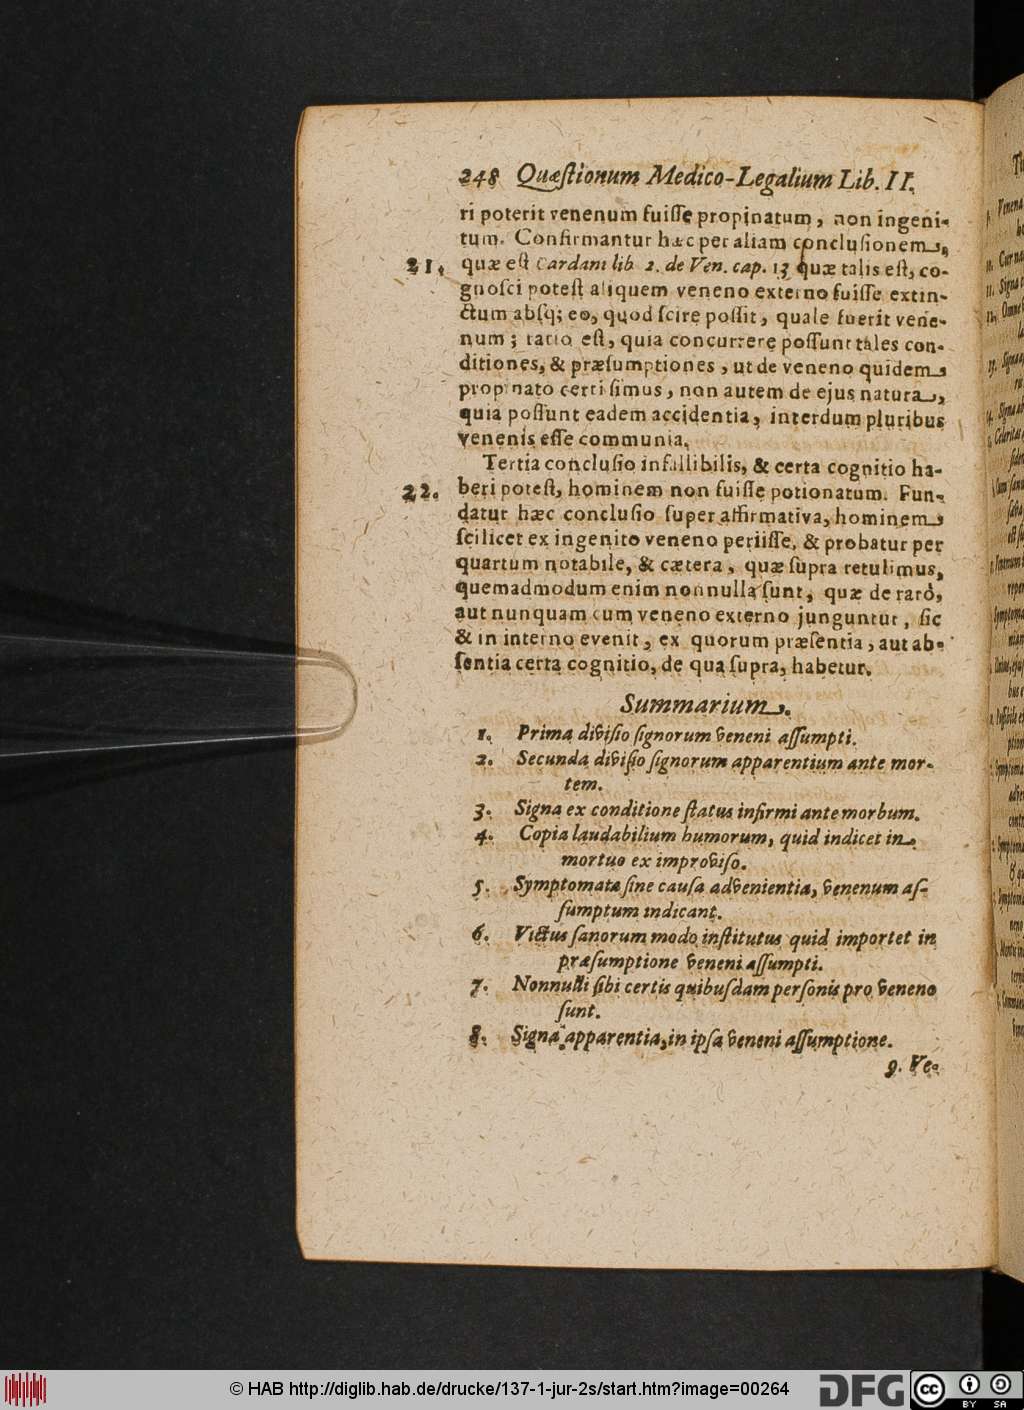 248 Quæſtionum Medico-Legalium Lib. II.
ri poterit venenum fuiſſe propinatum, non ingeni-
tum. Confirmantur hæc per aliam concluſionem,
21. quæ eſt Cardani lib. 2. de Ven. cap. 13 quæ talis eſt, co-
gnoſci poteſt aliquem veneno externo fuiſſe extin-
ctum abſq; eo, quod ſcire poſſit, quale fuerit vene-
num; ratio eſt, quia concurrere poſſunt tales con-
ditiones, & præſumptiones, ut de veneno quidem
propinato certiſſimus, non autem de ejus natura,
quia poſſunt eadem accidentia, interdum pluribus
venenis eſſe communia.
Tertia concluſio infallibilis, & certa cognitio ha-
22. beri poteſt, hominem non fuiſſe potionatum. Fun-
datur hæc concluſio ſuper affirmativa, hominem
ſcilicet ex ingenito veneno periiſſe, & probatur per
quartum notabile, & cætera, quæ ſupra retulimus,
quemadmodum enim nonnulla ſunt, quæ de rarò,
aut nunquam cum veneno externo junguntur, ſic
& in interno evenit, ex quorum præſentia, aut ab-
ſentia certa cognitio, de qua ſupra, habetur.
Summarium.
1. Prima diviſio ſignorum veneni aſſumpti.
2. Secunda diviſio ſignorum apparentium ante mor-
tem.
3. Signa ex conditione ſtatus infirmi ante morbum.
4. Copia laudabilium humorum, quid indicet in
mortuo ex improviſo.
5. Symptomata ſine cauſa advenientia, venenum aſ-
ſumptum indicant.
6. Victus ſanorum modo inſtitutus quid importet in
præſumptione veneni aſſumpti.
7. Nonnulli ſibi certis quibuſdam perſonis pro veneno
ſunt.
8. Signa apparentia, in ipſa veneni aſſumptione.
9. Ve-
© HAB http://diglib.hab.de/drucke/137-1-jur-2s/start.htm?image=00264
DFG
cc BY SA